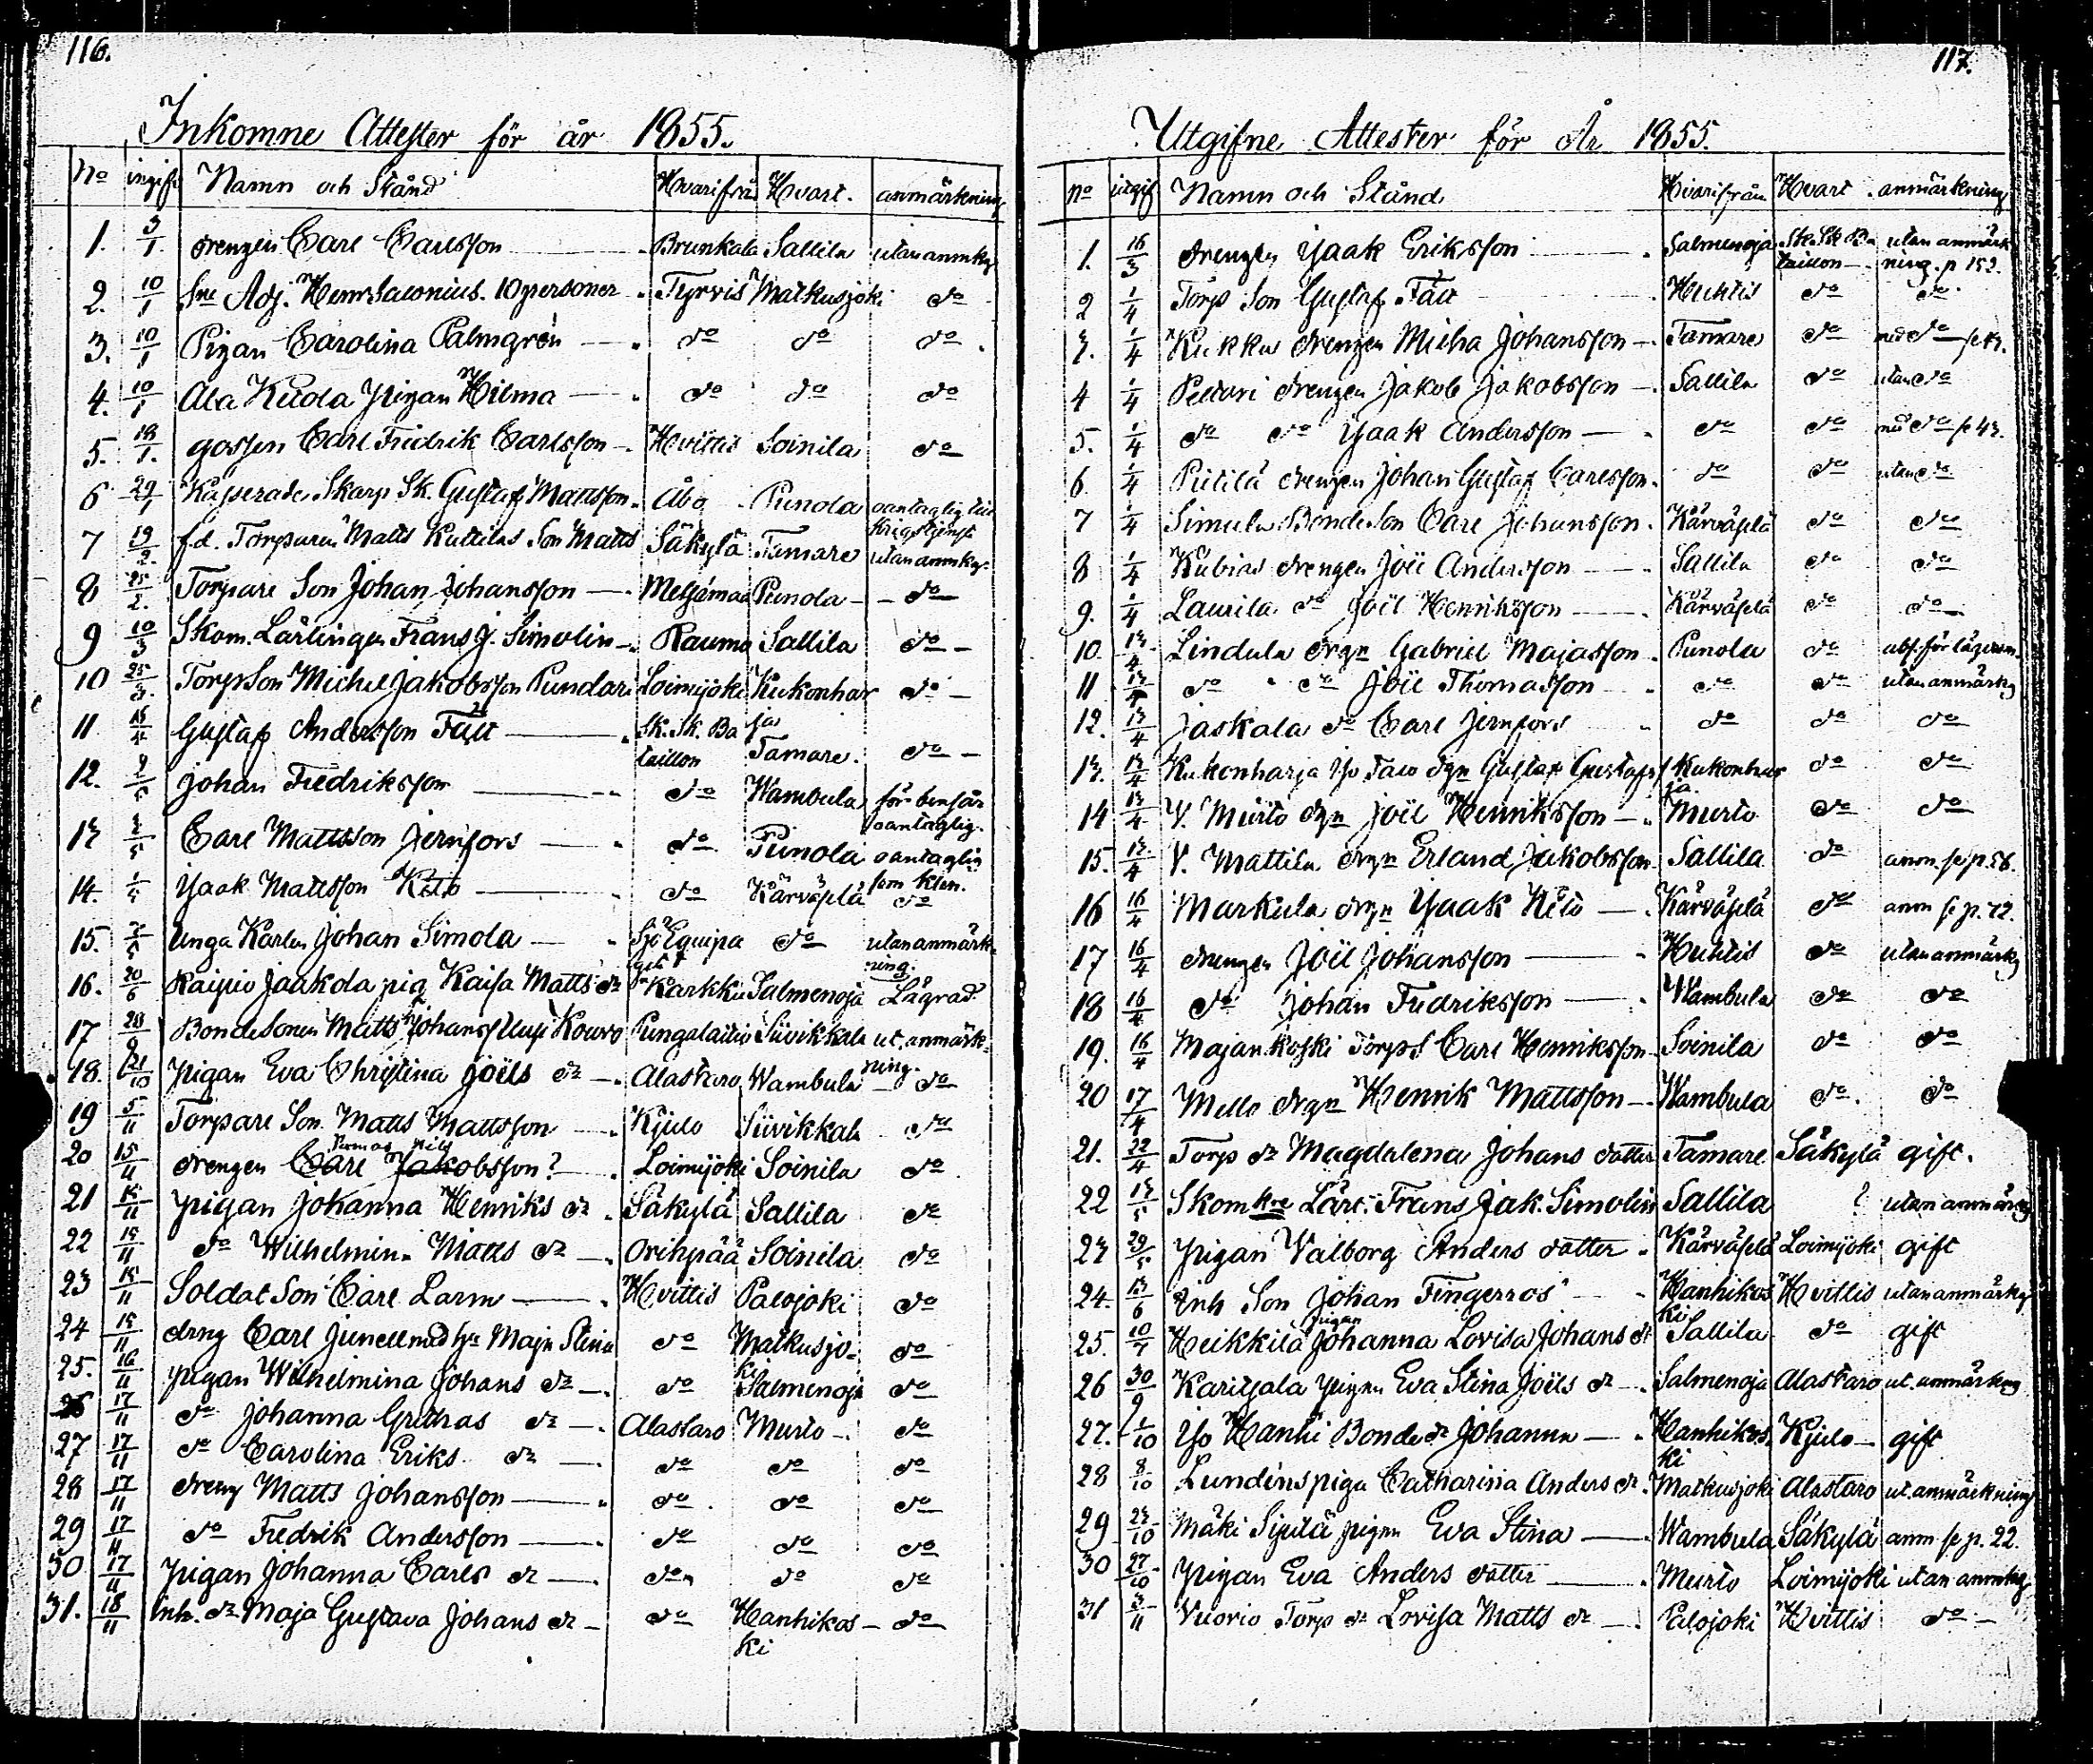 116.
Inkomne Attester för år 1855.
No ingifv Namn och Stånd Hvarifrån Hvart. anmärkning
1. 3/1. drengen Carl Carlsson Brunkala Sallila utan anmkg
2. 10/1 Sne Adj. Henr Salonius. 10 personer Tyrvis Matkusjoki do
3. 10/1 Pigan Carolina Palmgrén do do do
4. 10/1 Ala Kitola pigan Hilma do do do
5. 18/1. gossen Carl Fredrik Carlsson Hvittis Soinila do
6 29/1 Kasserade Skarp Sk. Gustaf Mattsson Åbo Punola oantaglig till
krigstjenst
7 19/2. f.d. Torparen Matts Kuttilas Son Matts Säkylä Tamare utan anmkg
8 25/2. Torpare Son Johan Johansson Metsämaa Punola do
9 10/3 Skom. Lärlingen Frans J. Simolin Raumo Sallila do
10 25/3. Torp Son Michel Jakobsson Pundari Loimijoki Kukonhar do
11 15/4 Gustaf Andersson Fält Sk. Sk. Ba jas
taillon Tamare. do
12. 2/5 Johan Fredriksson do Wambula för bensår
oantaglig.
13 2/5 Carl Mattsson Jernfors do Punola oantaglig
som klen.
14. 2/5 Isaak Mattsson Kito do Kärväselä do
15. 2/5 Unga Karlen Johan Simola Sjö Equipa do utan anmärk-
get ning.
16. 20/6 Raijuo Jaakola pig Kaisa Matts dr Karkku Salmenoja Lägrad
17 28/9 Bondesonen Matts Johansson Uusi Kouvo Pungalaitio Suvikkala ut. anmärk-
ning.
18. 21/10 Pigan Eva Christina Joëls dr Alastaro Wambula do
19 5/11 Torpare Son Matts Mattsson Kjulo Suvikkala do
Tomas Nils
20 15/11 drengen Carl Jakobsson? Loimijoki Soinila do
21 15/11 pigan Johanna Henriks dr Säkylä Sallila do
22 15/11 do Wilhelmina Matts dr Orihpää Soinila do
23 15/11 Soldat Son Carl Larm Hvittis Palojoki do
24 15/11 drng Carl Junell med hu Maja Stina do Matkusjo- do
ki
25. 16/11 pigan Wilhelmina Johans dr do Salmenoja do
26 17/11 do Johanna Grethas dr Alastaro Murto do
27 17/11 do Carolina Eriks dr do do do
28 17/11 dreng Matts Johansson do do do
29 17/11 do Fredrik Andersson do do do
30 17/11 pigan Johanna Carls dr do do do
31. 18/11 Inh. dr Maja Gustava Johans dr do Hanhikos- do
ki
117.
Utgifne Attester för År 1855.
No utgif Namn och Stånd Hvarifrån Hvart. anmärkning
1. 16/3 drengen Isaak Eriksson Salmenoja Sk. Sk Ba utan anmärk
taillon ning. p 152.
2 1/4 Torp Son Gustaf Fält Huhtis do do
3. 1/4 Kukku drengen Micha Johansson Tamare do med do se 43.
4 1/4 Peltari drengen Jakob Jakobsson Sallila do utan do
5. 1/4 do do Isaak Andersson do do med do se 43.
6. 1/4 Piitilä drengen Johan Gustaf Carlsson do do utan do
7 1/4 Simula Bonde Son Carl Johansson Kärväselä do do
8 1/4 Kubias drengen Joël Andersson Sallila do do
9. 1/4 Laurila do Joël Henriksson Kärväselä do do
10. 13/4 Lindula drgn Gabriel Majasson Punola do abs. för lägersm.
11 13/4 do do Joël Thomasson do do utan anmärkg
12. 13/4 Jaskala do Carl Jernfors do do do
13. 13/4 Kukonharja Iso Talo dgn Gustaf Gustafss Kukonhar do do
ja
14 13/4 Y. Murto dgn Joël Henriksson Murto do do
15. 13/4 Y. Mattila drgn Erland Jakobsson Sallila do anm. se p. 56.
16 16/4 Markula drgn Isaak Kito Kärväselä do anm se p. 72.
17 16/4 drengen Joël Johansson Huhtis do utan anmärkg
18 16/4 do Johan Fredriksson Wambula do do
19. 16/4 Majankoski Torp S Carl Henriksson Soinila do do
20 17/4 Mello drgn Henrik Mattsson Wambula do. do
21. 22/4 Torp dr Magdalena Johans dotter Tamare Säkylä gift.
22 13/5 Skomkre Lärl. Frans Jak. Simolin Sallila ? utan anmärkg
23 29/5 pigan Valborg Anders dotter Kärväselä Loimijoki gift
24. 13/6 Inh Son Johan Fingerroos Hanhikos Hvittis utan anmärkg
pigan ki
25. 10/7 Heikkilä Johanna Lovisa Johans dr Sallila do gift
26 30/9 Karitjala pigan Eva Stina Joëls dr Salmenoja Alastaro ut. anmärkng
27. 1/10 Iso Hanhi Bonde dr Johanna Hanhikos- Kjulo gift
ki
28 8/10 Lundéns piga Catharina Anders dr Matkusjoki Alastaro ut. anmärkning
29 23/10 Mäki Sipilä pigan Eva Stina Wambula Säkylä anm se p. 22.
30 27/10 pigan Eva Anders dotter Murto Loimijoki utan anmkg
31 3/11 Vuorio Torp dr Lovisa Matts dr Palojoki Hvittis do